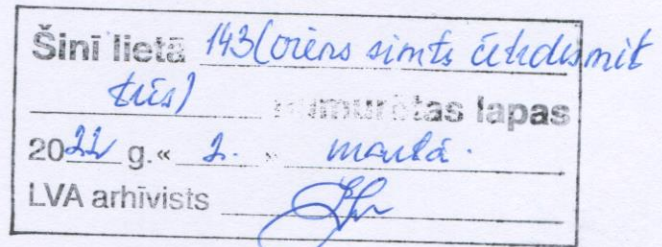 Šinī lietā 143 (viens simts četrdesmit
trīs) numurētas lapas
2022 g. « 2. » martā.
LVA arhīvists